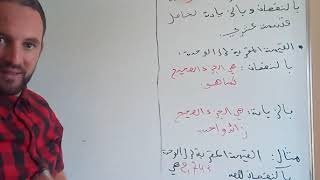 بالنقصان وبالزيادة لحاصل
قسمة عشرية.
القيمة المقربة إلى الوحدة
بالنقصان: هي الجزء الصحيح
كما هو.
بالزيادة: هي الجزء الصحيح
زائد واحد.
مثال: القيمة المقربة إلى الوحدة
بالنقصان للعدد هي